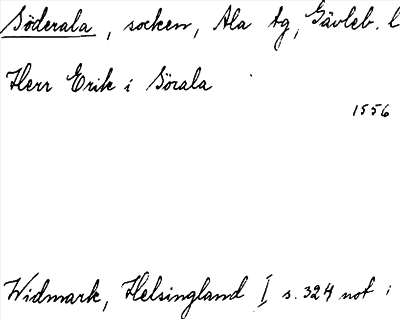 Söderala, socken, Ala tg, Gävleb. l
Herr Erik i Sörala
1556
Widmark, Helsingland I s. 324 not i